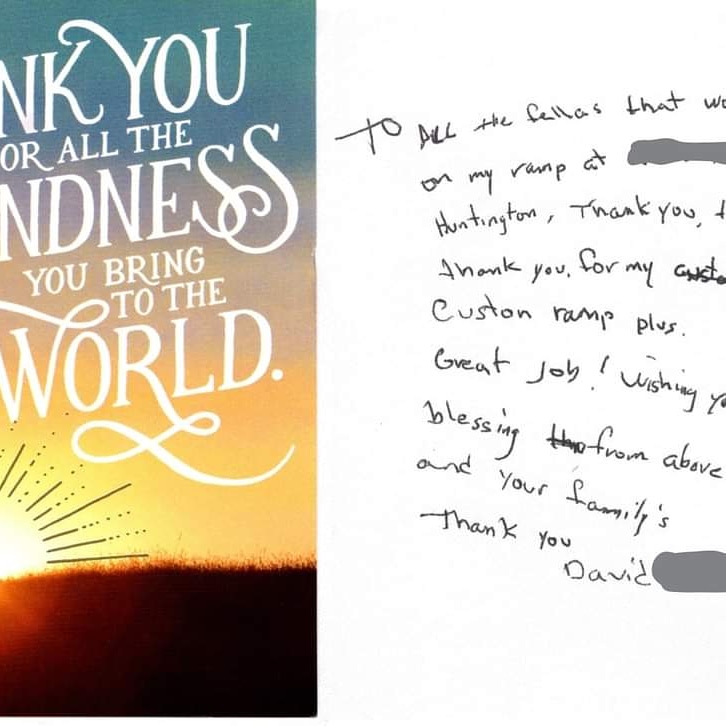 NK YOU
OR ALL THE
NDNESS
YOU BRING
TO THE
WORLD.
To All the fellas that wo
on my ramp at
Huntington, Thank you, t
thank you, for my custo
Custon ramp plus.
Great Job! Wishing yo
blessing from above
and your family's
Thank you
David